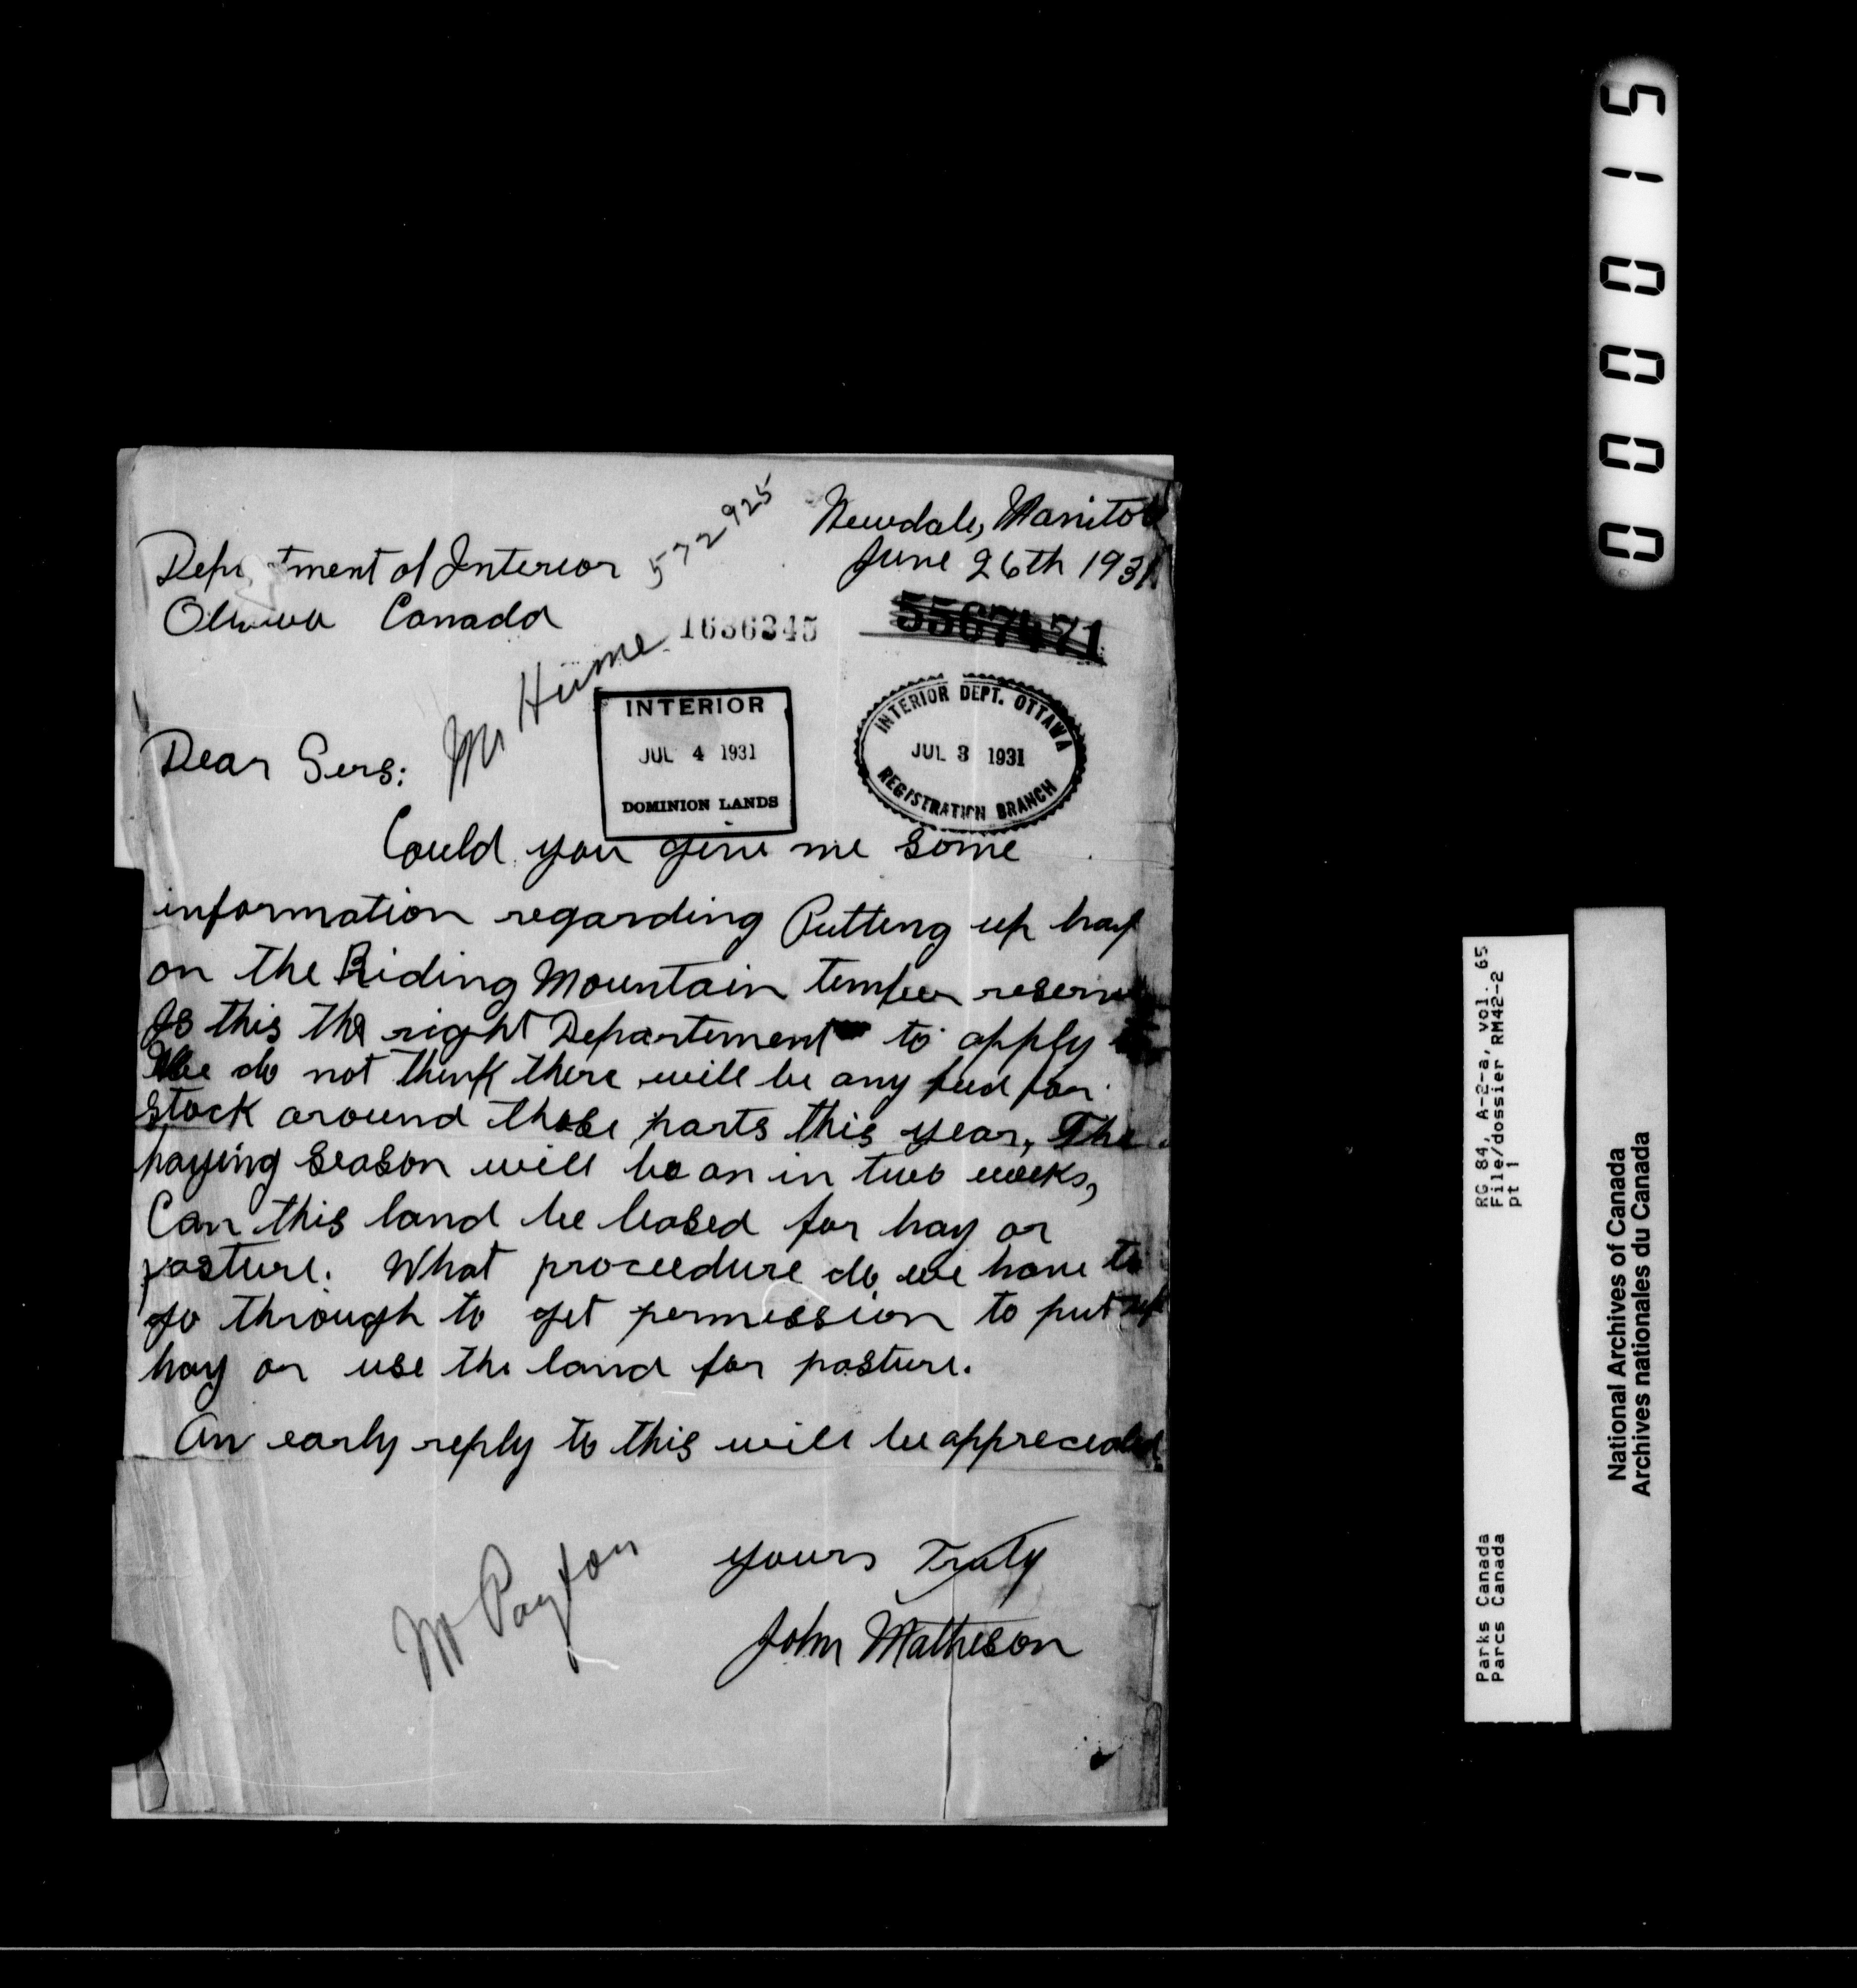 Newdale, Manitob
June 26th 1931
572925
Department of Interior
Ottawa Canada
1636345
5567471
Mr Hume
INTERIOR
JUL 4 1931
DOMINION LANDS
INTERIOR DEPT. OTTAWA
JUL 3 1931
REGISTRATION BRANCH
Dear Sirs:
Could you give me some
information regarding Putting up hay
on the Riding Mountain timber reserve
Is this the right Departement to apply
We do not think there will be any feed for
stock around these parts this year, The
haying season will be on in two weeks,
Can this land be leased for hay or
pasture. What proceedure do we have to
go through to get permission to put up
hay or use the land for pasture.
An early reply to this will be appreceated
yours Truly
John Matheson
Mr Payton
000015
RG 84, A-2-a, vol. 65
File/dossier RM42-2
pt 1
Parks Canada
Parcs Canada
National Archives of Canada
Archives nationales du Canada